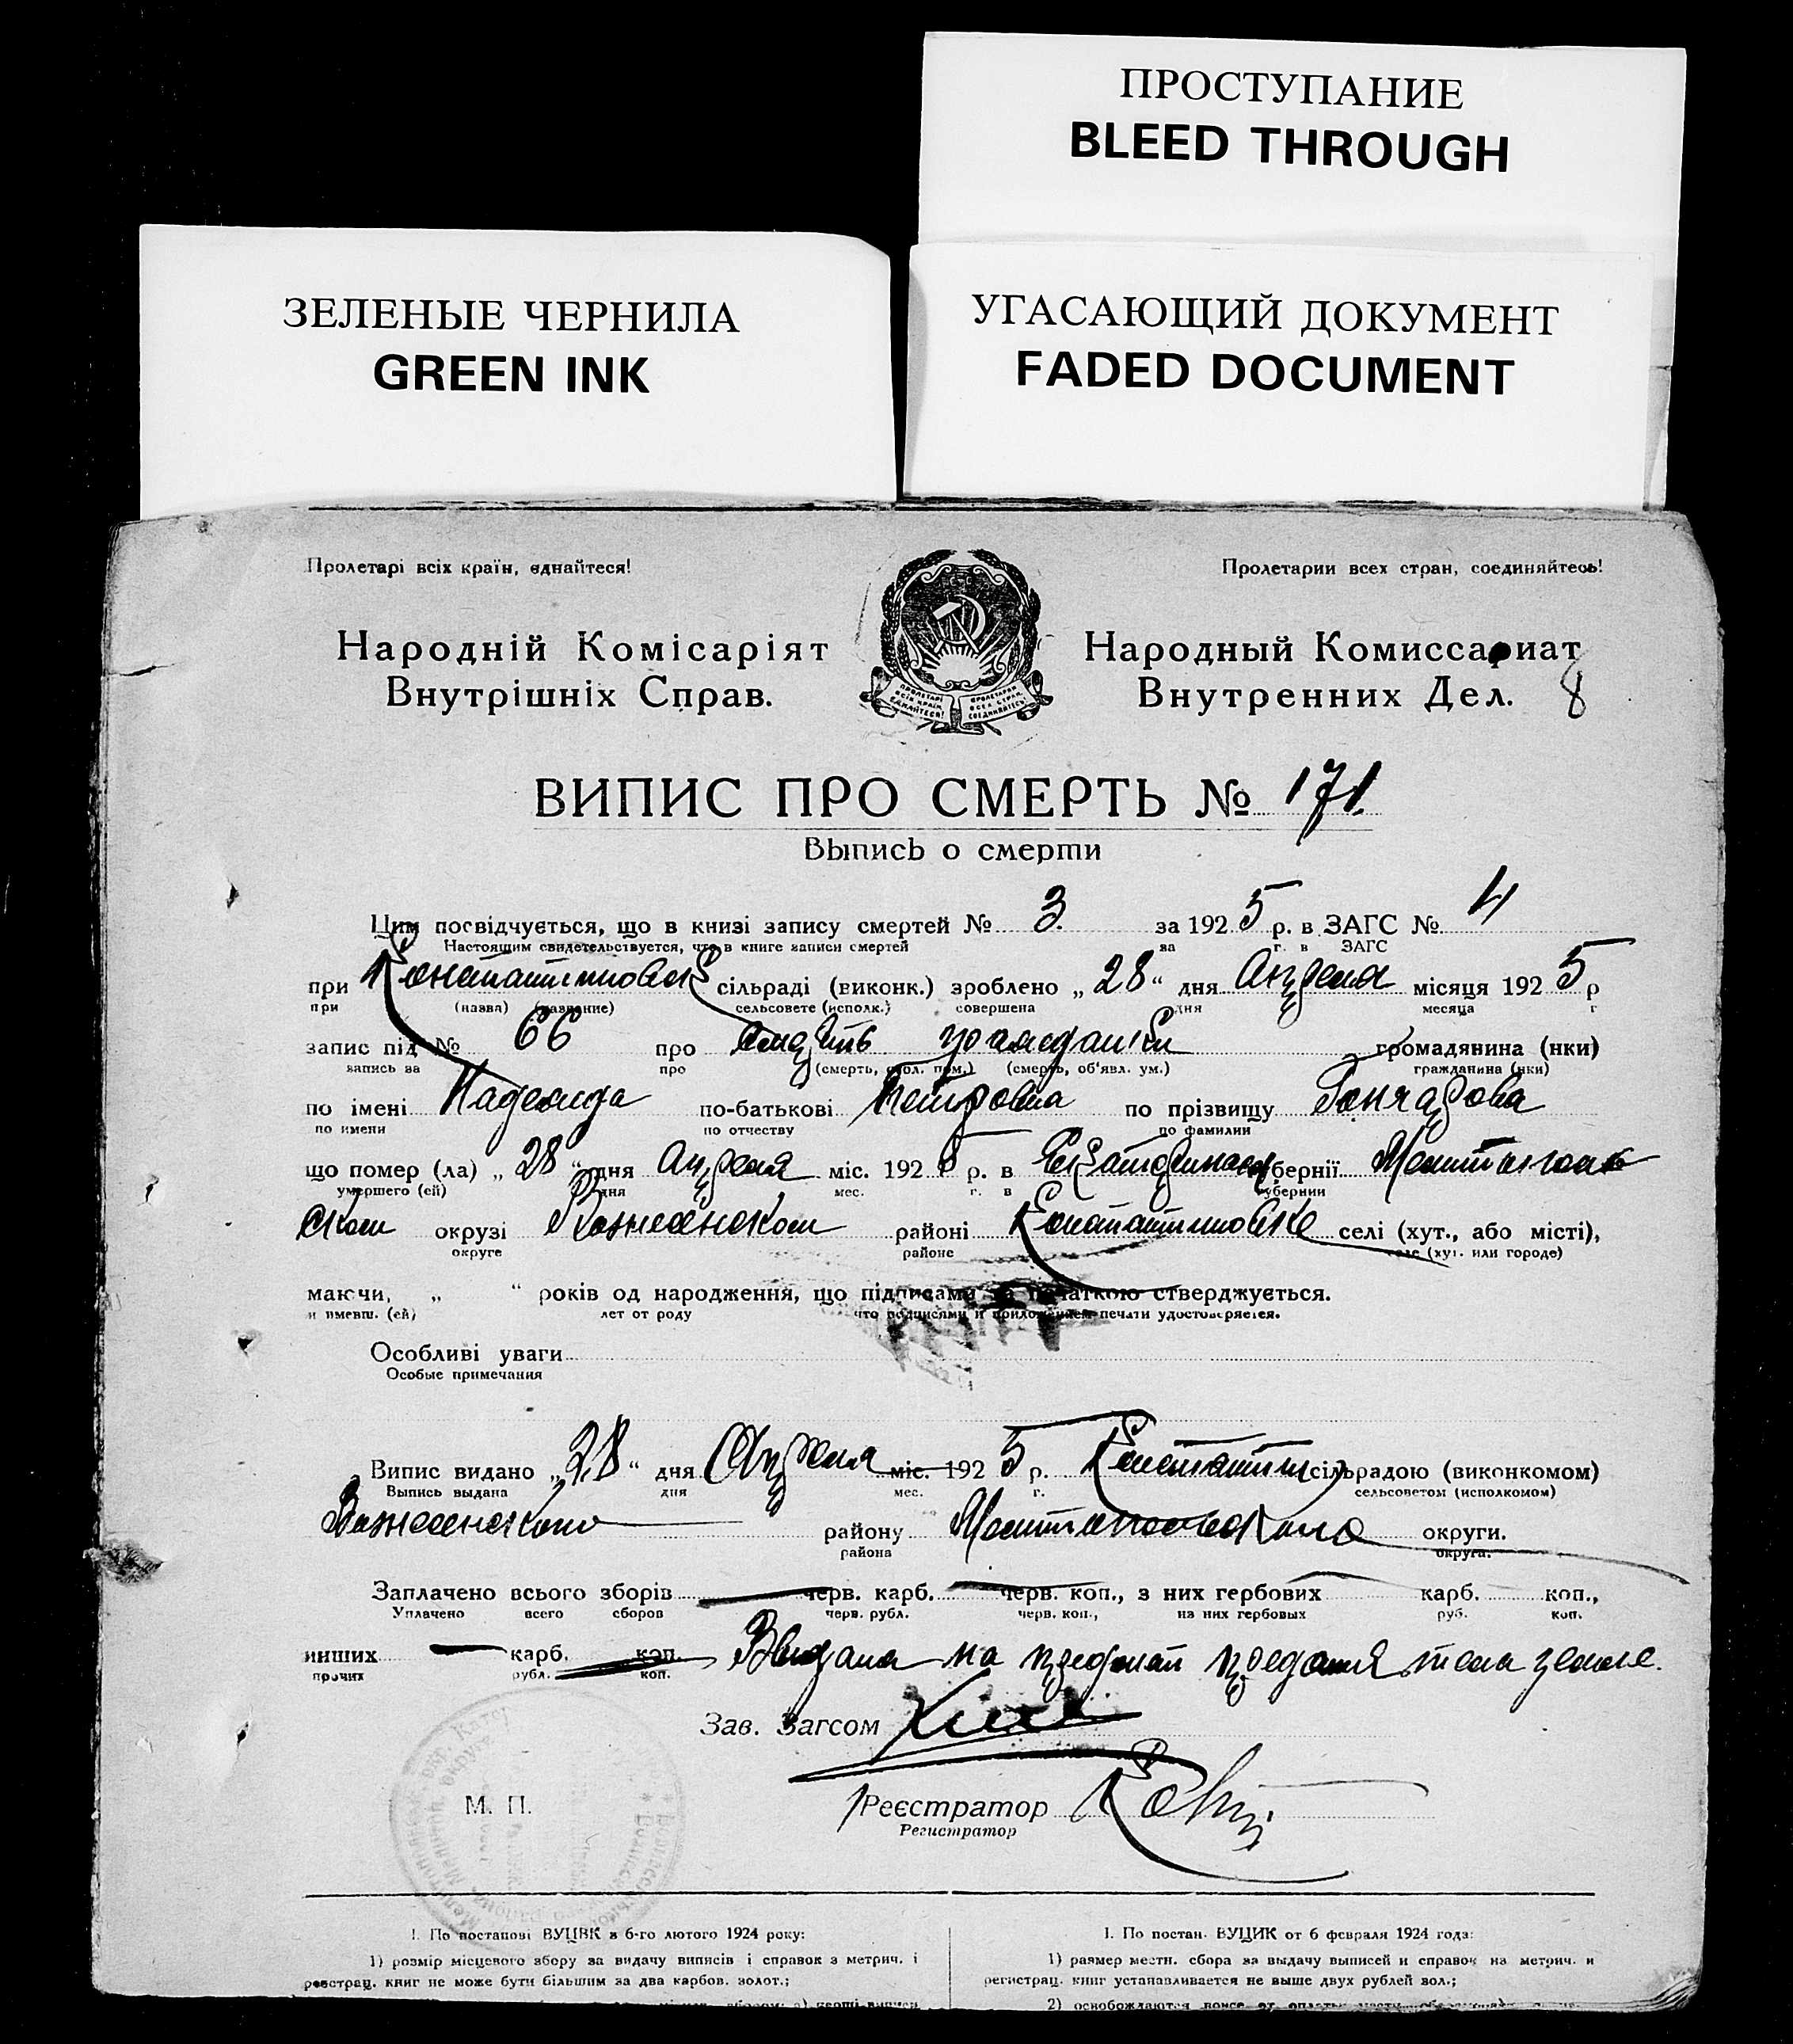 ПРОСТУПАНИЕ
BLEED THROUGH
ЗЕЛЕНЫЕ ЧЕРНИЛА
GREEN INK
УГАСАЮЩИЙ ДОКУМЕНТ
FADED DOCUMENT
Пролетарі всіх країн, єднайтеся!
Пролетарии всех стран, соединяйтесь!
Народній Комісаріят
Внутрішніх Справ.
ПРОЛЕТАРІ ВСІХ КРАЇН ЄДНАЙТЕСЯ!
ПРОЛЕТАРИИ ВСЕХ СТРАН, СОЕДИНЯЙТЕСЬ!
Народный Комиссариат
Внутренних Дел. 8
ВИПИС ПРО СМЕРТЬ № 171.
Выпись о смерти
Цим посвідчується, що в книзі запису смертей № 3. за 1925 р. в ЗАГС № 4
Настоящим свидетельствуется, что в книге записи смертей за г. в ЗАГС
при Константиновской сільраді (виконк.) зроблено „28“ дня Апреля місяця 1925 р
при (назва) (название) сельсовете (исполк.) совершена дня месяца г
запис під № 66 про смерть гражданки громадянина (нки)
запись за про (смерть, огол. пом.) (смерть, об'явл. ум.) гражданина (нки)
по імені Надежда по-батькові Петровна по прізвищу Гончарова
по имени по отчеству по фамилии
що помер (ла) „28“ дня Апреля міс. 1925 р. в Екатеринослав губернії Мелитополь
умершего (ей) дня мес. г. в губернии
ском окрузі Вознесенском районі Константиновке селі (хут., або місті),
округе районе селе (хут. или городе)
маючи, „ “ років од народження, що підписами та печаткою стверджується.
и имевш. (ей) лет от роду что подписями и приложением печати удостоверяется.
Особливі уваги
Особые примечания
Випис видано „28“ дня Апреля міс. 1925 р. Константин сільрадою (виконкомом)
Выпись выдана дня мес. г. сельсоветом (исполкомом)
Вознесенского району Мелитопольского округи.
района округа.
Заплачено всього зборів черв. карб. черв. коп., з них гербових карб. коп.,
Уплачено всего сборов черв. рубл. черв. коп., из них гербовых руб. коп.
инших карб. коп. Выдана на предмет предания тела земле.
прочих рубл. коп.
Зав. Загсом
М. П.
Реєстратор
Регистратор
1. По постанові ВУЦВК з 6-го лютого 1924 року:
1) розмір місцевого збору за видачу виписів і справок з метрич. і
реєстрац. книг не може бути більшим за два карбов. золот.;
1. По постан. ВУЦИК от 6 февраля 1924 года:
1) размер местн. сбора за выдачу выписей и справок из метрич. и
регистрац. книг устанавливается не выше двух рублей зол.;
2) освобождаются вовсе от оплаты